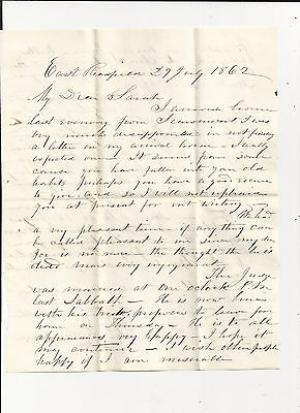 East 29 July 1862
My Dear Sarah
I arrived home
last evening from I was
very much disappointed in not finding
a letter on my arrival home – I really
expected one – It seems from some
cause you have fallen into your old
habits perhaps you have a good excuse
to give and so I will not upbraid
you at present for not writing –
We had
a very pleasant time – if any thing can
be called pleasant to me since my
Joe is no more the thought that he is
dead mars every enjoyment
The Judge
was married at one o'clock P.M.
last Sabbath – He is now here
with his bride proposes to leave for
home on Thursday – He is to all
appearances very happy – I hope it
may continue – I wish other people
happy if I am miserable